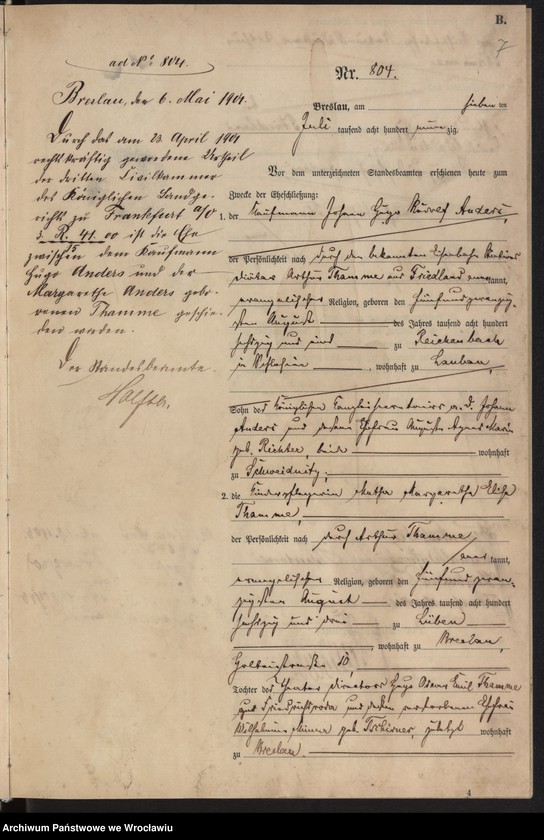 B.
7
ad No 804.
Breslau, den 6. Mai 1901.
Durch das am 23. April 1901
rechtskräftig gewordene Urtheil
der dritten Civilkammer
des Königlichen Landge-
richts zu Frankfurt a/O
3. R. 41. 00 ist die Ehe
zwischen dem Kaufmann
Hugo Anders und der
Margarethe Anders gebo-
renen Thamme geschie-
den worden.
Der Standesbeamte.
Nr. 804.
Breslau, am sieben ten
Juli tausend acht hundert neunzig.
Vor dem unterzeichneten Standesbeamten erschienen heute zum
Zwecke der Eheschließung:
1. der Kaufmann Johann Hugo Anders,
der Persönlichkeit nach durch den bekannten
Arthur Thamme aus Friedland anerkannt,
evangelischer Religion, geboren den fünfundzwanzig-
sten August des Jahres tausend acht hundert
sechszig und eins zu Reichenbach
in Schlesien, wohnhaft zu Lauban,
Sohn des Königlichen a. D. Johann
Anders und dessen Ehefrau Auguste Agnes Marie
geb. Richter, beide wohnhaft
zu Schweidnitz,
2. die Kinderpflegerin Martha Margarethe Elise
Thamme,
der Persönlichkeit nach durch Arthur Thamme
anerkannt,
evangelischer Religion, geboren den fünfundzwan-
zigsten August des Jahres tausend acht hundert
sechszig und drei zu Lüben
, wohnhaft zu Breslau,
Holteistraße 10,
Tochter des Theater directors Hugo Oscar Emil Thamme
aus Friedrichroda und dessen verstorbenen Ehefrau
Wilhelmine Minna geb. Tschirner, zuletzt wohnhaft
zu Breslau.
4
Archiwum Państwowe we Wrocławiu